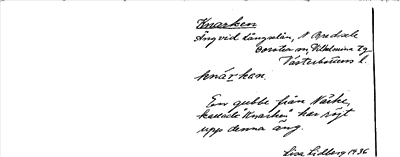 Knarken
Äng vid Långselån, N Bredsele
Dorotea sn, Vilhelmina tg
Västerbottens l.
knárkan.
En gubbe från Näske,
kallade "Knarken" har röjt
upp denna äng.
Lisa Lidberg 1936